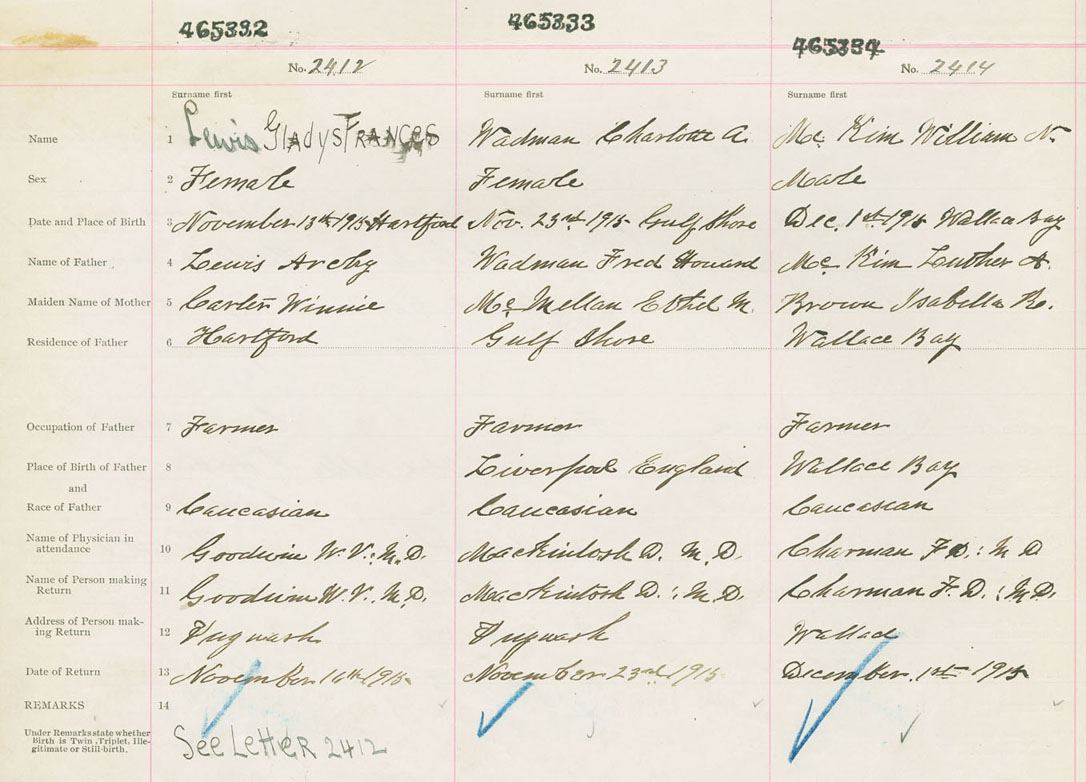 465332 465333 465334
No. 2412 No. 2413 No. 2414
Surname first Surname first Surname first
Name 1 Lewis Gladys Frances Wadman Charlotte A. Mc Kim William N.
Sex 2 Female Female Male
Date and Place of Birth 3 November 13th 1915 Hartford Nov. 23rd 1915 Gulf Shore Dec. 1st 1915 Wallace Bay
Name of Father 4 Lewis Archy Wadman Fred Howard Mc Kim Luther A.
Maiden Name of Mother 5 Carter Winnie McMellan Ethel M. Brown Isabella B.
Residence of Father 6 Hartford Gulf Shore Wallace Bay
Occupation of Father 7 Farmer Farmer Farmer
Place of Birth of Father 8 Liverpool England Wallace Bay
and
Race of Father 9 Caucasian Caucasian Caucasian
Name of Physician in
attendance 10 Goodwin W.V. M.D. MacKintosh D. M.D. Charman F D. : M D
Name of Person making
Return 11 Goodwin W.V. M.D. MacKintosh D. : M.D. Charman F. D. : M.D.
Address of Person mak-
ing Return 12 Pugwash Pugwash Wallace
Date of Return 13 November 16th 1915 November 23rd 1915 December 1st 1915
REMARKS 14
Under Remarks state whether
Birth is Twin, Triplet, Ille-
gitimate or Still-birth.
See Letter 2412